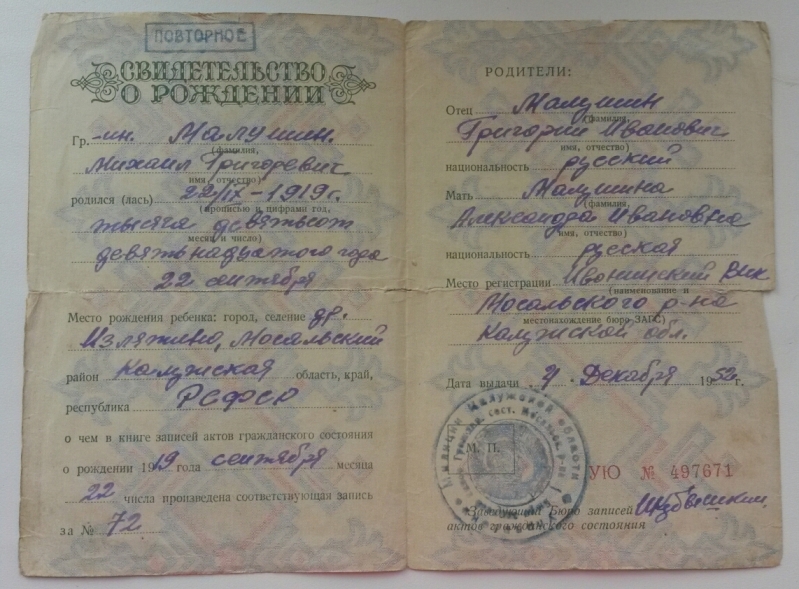 ПОВТОРНОЕ
СВИДЕТЕЛЬСТВО
О РОЖДЕНИИ
Гр. -ин. Малушин.
(фамилия,
Михаил Григоревич
имя, отчество)
родился (лась) 22/IX - 1919 г.
(прописью и цифрами год,
тысяча девятьсот
месяц и число)
девятьнадцатого года
22 сентября
Место рождения ребенка: город, селение др.
Изляжино, Мосальский
район Калужская область, край,
республика РСФСР
о чем в книге записей актов гражданского состояния
о рождении 1919 года сентября месяца
22 числа произведена соответствующая запись
за № 72
РОДИТЕЛИ:
Отец Малушин
(фамилия,
Григорий Иванович
имя, отчество)
национальность русский
Мать Малушина
(фамилия,
Александра Ивановна
имя, отчество)
национальность русская
Место регистрации
(наименование и
Мосальского р-на
местонахождение бюро ЗАГС)
Калужской обл.
Дата выдачи 9 Декабря 1952 г.
М. П.
УЮ № 497671
Заведующий Бюро записей
актов гражданского состояния